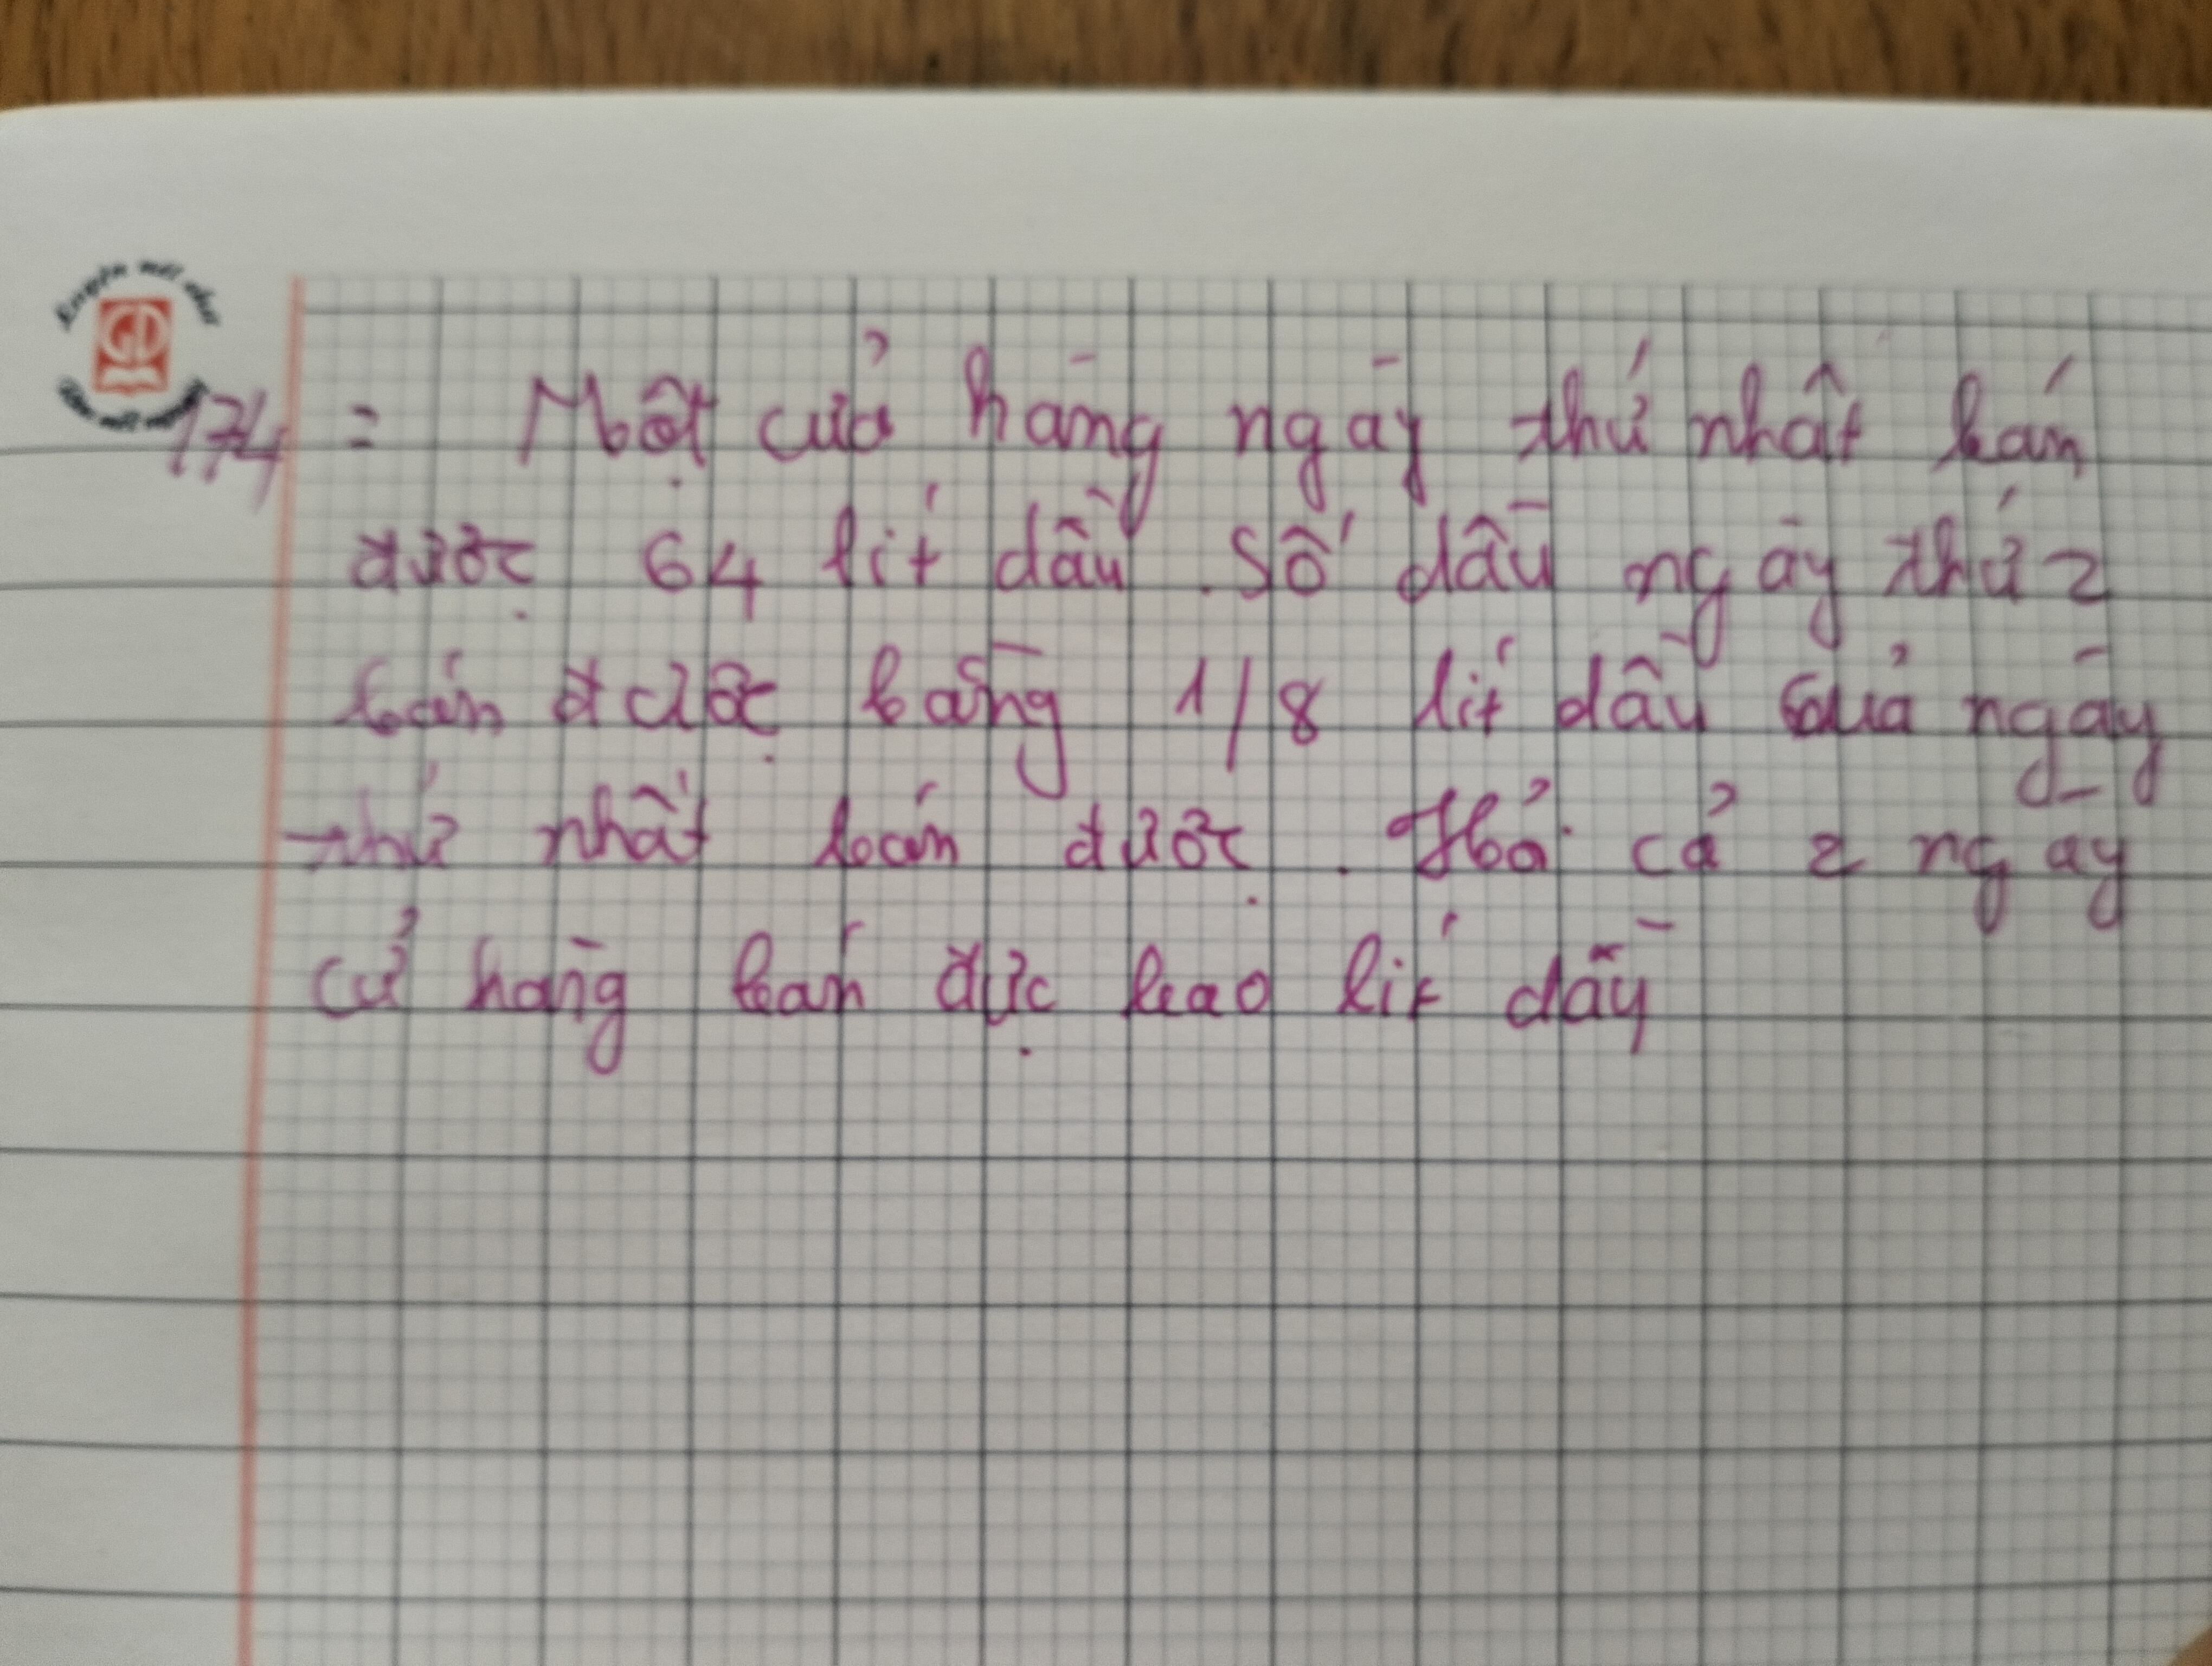 174 = Một cửa hàng ngày thứ nhất bán
được 64 lít dầu. Số dầu ngày thứ 2
bán được bằng 1/8 lít dầu của ngày
thứ nhất bán được. Hỏi cả 2 ngày
cử hàng bán đực bao lít dầy